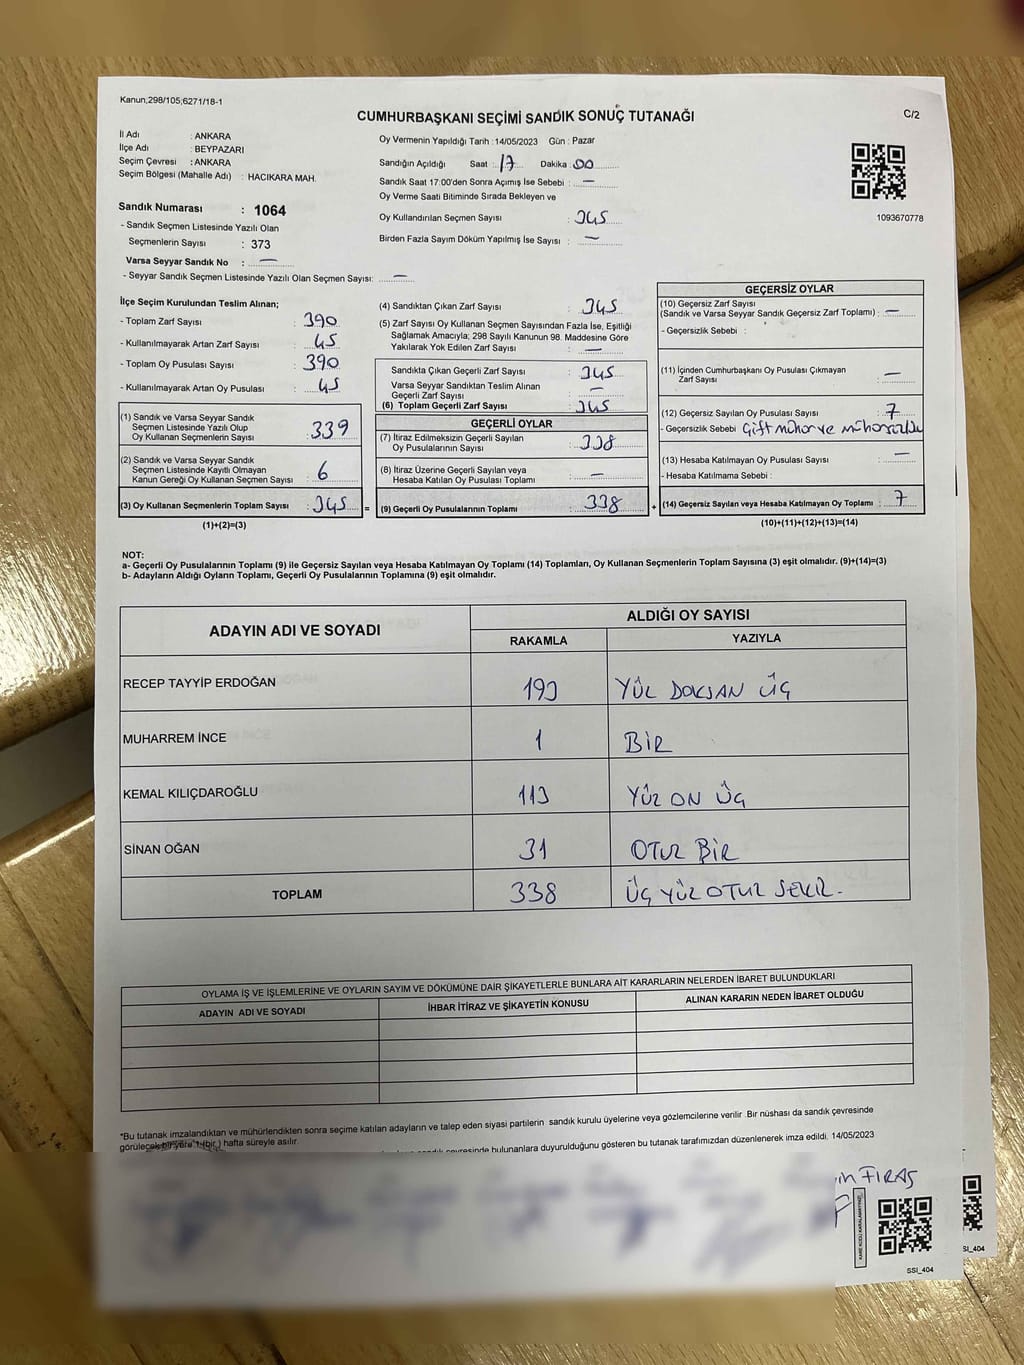 Kanun;298/105;6271/18-1
CUMHURBAŞKANI SEÇİMİ SANDIK SONUÇ TUTANAĞI
C/2
İl Adı : ANKARA
İlçe Adı : BEYPAZARI
Seçim Çevresi : ANKARA
Seçim Bölgesi (Mahalle Adı) : HACIKARA MAH.
Sandık Numarası : 1064
- Sandık Seçmen Listesinde Yazılı Olan
Seçmenlerin Sayısı : 373
Varsa Seyyar Sandık No : —
- Seyyar Sandık Seçmen Listesinde Yazılı Olan Seçmen Sayısı: —
Oy Vermenin Yapıldığı Tarih : 14/05/2023 Gün : Pazar
Sandığın Açıldığı Saat : 17 Dakika : 00
Sandık Saat 17:00'den Sonra Açımış İse Sebebi : —
Oy Verme Saati Bitiminde Sırada Bekleyen ve
Oy Kullandırılan Seçmen Sayısı : 345
Birden Fazla Sayım Döküm Yapılmış İse Sayısı : —
1093670778
İlçe Seçim Kurulundan Teslim Alınan;
- Toplam Zarf Sayısı : 390
- Kullanılmayarak Artan Zarf Sayısı : 45
- Toplam Oy Pusulası Sayısı : 390
- Kullanılmayarak Artan Oy Pusulası : 45
(1) Sandık ve Varsa Seyyar Sandık
Seçmen Listesinde Yazılı Olup
Oy Kullanan Seçmenlerin Sayısı : 339
(2) Sandık ve Varsa Seyyar Sandık
Seçmen Listesinde Kayıtlı Olmayan
Kanun Gereği Oy Kullanan Seçmen Sayısı : 6
(3) Oy Kullanan Seçmenlerin Toplam Sayısı : 345 =
(1)+(2)=(3)
(4) Sandıktan Çıkan Zarf Sayısı : 345
(5) Zarf Sayısı Oy Kullanan Seçmen Sayısından Fazla İse, Eşitliği
Sağlamak Amacıyla; 298 Sayılı Kanunun 98. Maddesine Göre
Yakılarak Yok Edilen Zarf Sayısı : —
Sandıkta Çıkan Geçerli Zarf Sayısı : 345
Varsa Seyyar Sandıktan Teslim Alınan
Geçerli Zarf Sayısı : —
(6) Toplam Geçerli Zarf Sayısı : 345
GEÇERLİ OYLAR
(7) İtiraz Edilmeksizin Geçerli Sayılan
Oy Pusulasının Sayısı : 338
(8) İtiraz Üzerine Geçerli Sayılan veya
Hesaba Katılan Oy Pusulası Toplamı : —
(9) Geçerli Oy Pusulalarının Toplamı : 338 +
GEÇERSİZ OYLAR
(10) Geçersiz Zarf Sayısı
(Sandık ve Varsa Seyyar Sandık Geçersiz Zarf Toplamı) : —
- Geçersizlik Sebebi :
(11) İçinden Cumhurbaşkanı Oy Pusulası Çıkmayan
Zarf Sayısı : —
(12) Geçersiz Sayılan Oy Pusulası Sayısı : 7
- Geçersizlik Sebebi Çift mühür ve
(13) Hesaba Katılmayan Oy Pusulası Sayısı : —
- Hesaba Katılmama Sebebi :
(14) Geçersiz Sayılan veya Hesaba Katılmayan Oy Toplamı : 7
(10)+(11)+(12)+(13)=(14)
NOT:
a- Geçerli Oy Pusulalarının Toplamı (9) ile Geçersiz Sayılan veya Hesaba Katılmayan Oy Toplamı (14) Toplamları, Oy Kullanan Seçmenlerin Toplam Sayısına (3) eşit olmalıdır. (9)+(14)=(3)
b- Adayların Aldığı Oyların Toplamı, Geçerli Oy Pusulalarının Toplamına (9) eşit olmalıdır.
ADAYIN ADI VE SOYADI
ALDIĞI OY SAYISI
RAKAMLA YAZIYLA
RECEP TAYYİP ERDOĞAN 193 YÜZ DOKSAN ÜÇ
MUHARREM İNCE 1 BİR
KEMAL KILIÇDAROĞLU 113 YÜZ ON ÜÇ
SİNAN OĞAN 31 OTUZ BİR
TOPLAM 338 ÜÇ YÜZ OTUZ SEKİZ.
OYLAMA İŞ VE İŞLEMLERİNE VE OYLARIN SAYIM VE DÖKÜMÜNE DAİR ŞİKAYETLERLE BUNLARA AİT KARARLARIN NELERDEN İBARET BULUNDUKLARI
ADAYIN ADI VE SOYADI İHBAR İTİRAZ VE ŞİKAYETİN KONUSU ALINAN KARARIN NEDEN İBARET OLDUĞU
*Bu tutanak imzalandıktan ve mühürlendikten sonra seçime katılan adayların ve talep eden siyasi partilerin sandık kurulu üyelerine veya gözlemcilerine verilir .Bir nüshası da sandık çevresinde
görülecek bir yere 1 (bir) hafta süreyle asılır.
sandık çevresinde bulunanlara duyurulduğunu gösteren bu tutanak tarafımızdan düzenlenerek imza edildi. 14/05/2023
FIRAS
SSI_404
SI_404